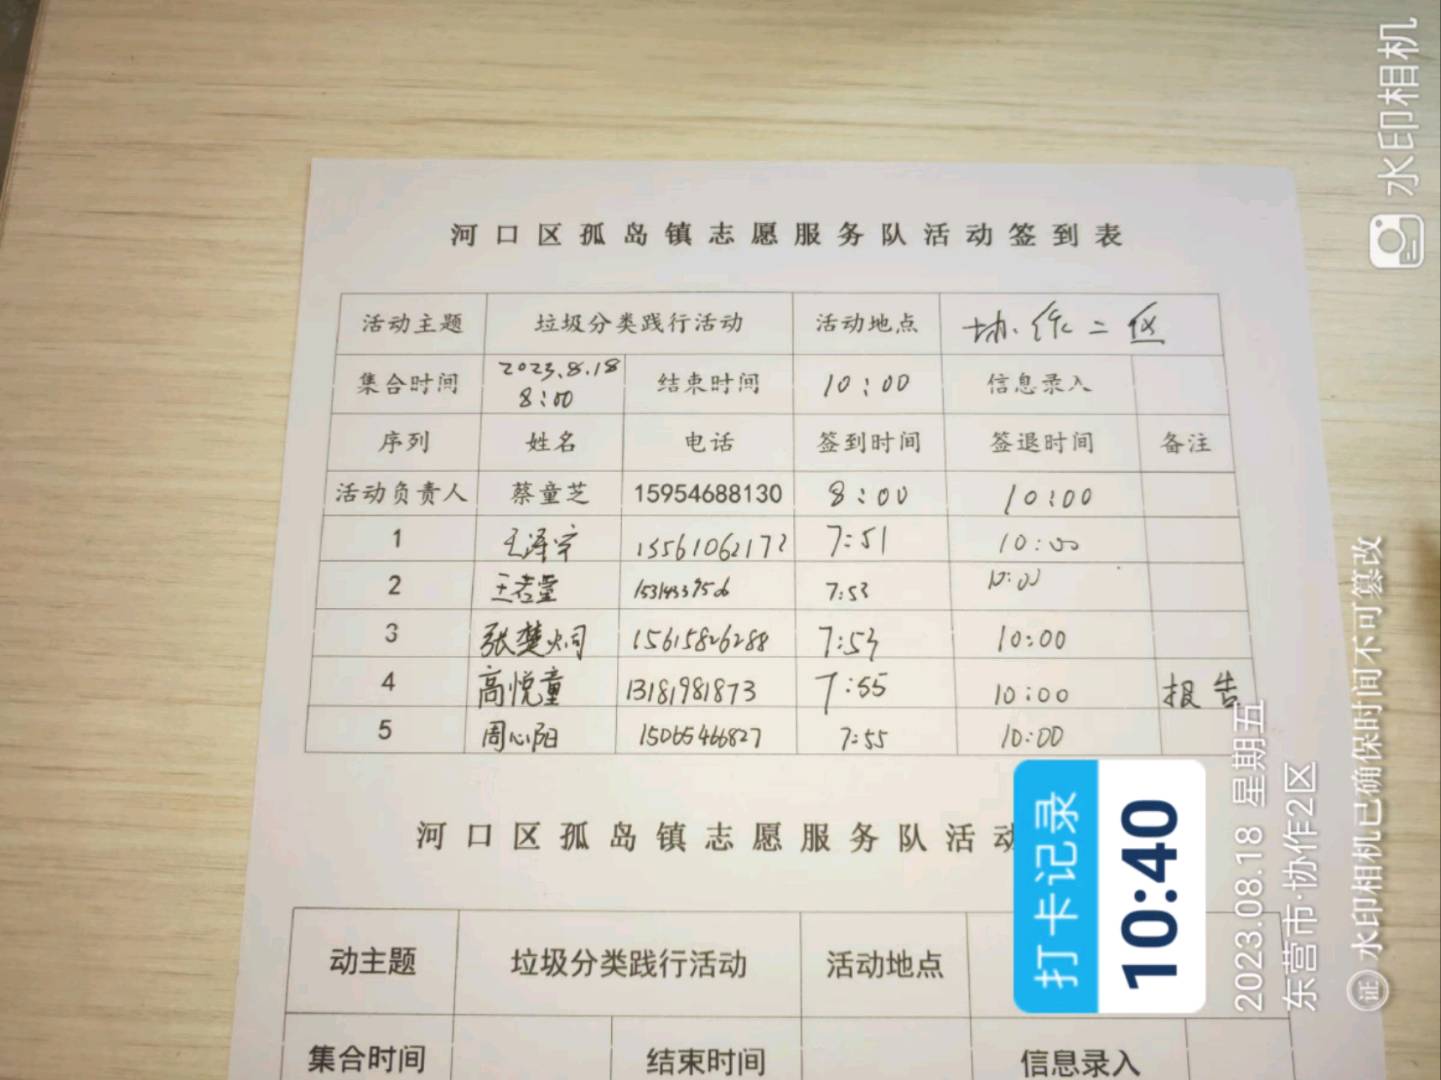 河口区孤岛镇志愿服务队活动签到表
活动主题 垃圾分类践行活动 活动地点 协作二区
集合时间 2023.8.18 8:00 结束时间 10:00 信息录入
序列 姓名 电话 签到时间 签退时间 备注
活动负责人 蔡童芝 15954688130 8:00 10:00
1 王泽宇 15561062172 7:51 10:00
2 7:53 10:00
3 张楚炯 15615826288 7:53 10:00
4 高悦童 13181981873 7:55 10:00 报告
5 周心阳 15065466827 7:55 10:00
河口区孤岛镇志愿服务队活动
动主题 垃圾分类践行活动 活动地点
集合时间 结束时间 信息录入
打卡记录
10:40
2023.08.18 星期五
东营市·协作2区
证 水印相机已确保时间不可篡改
水印相机